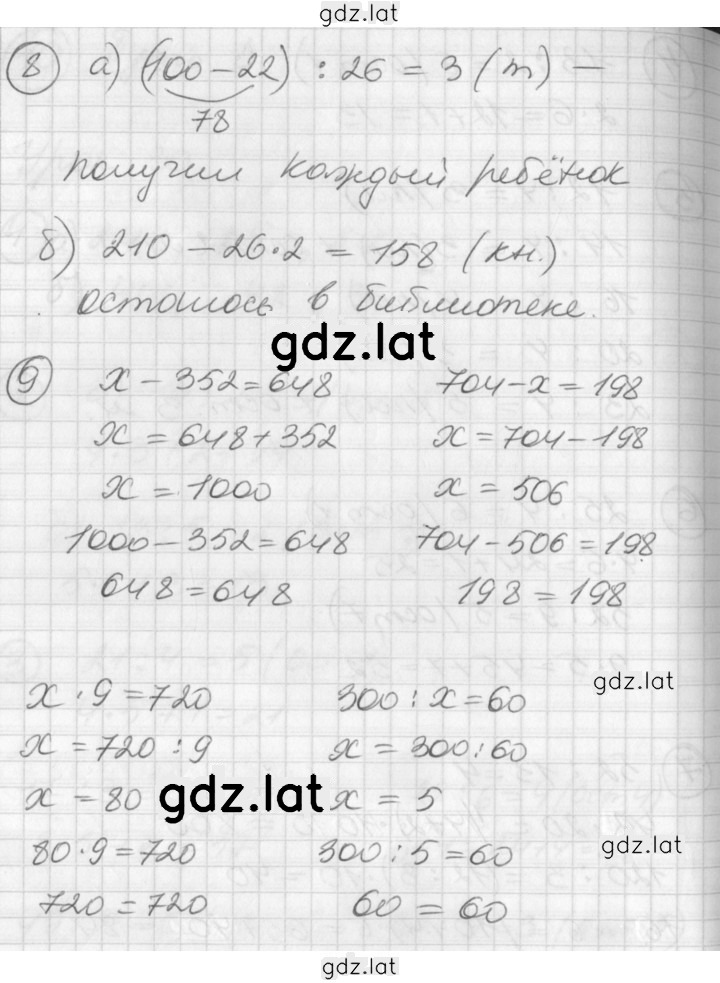 gdz.lat
8 а) (100 - 22) : 26 = 3 (т) —
78
получил каждый ребёнок
б) 210 - 26·2 = 158 (кн.)
осталось в библиотеке.
gdz.lat
9 x - 352 = 648 704 - x = 198
x = 648 + 352 x = 704 - 198
x = 1000 x = 506
1000 - 352 = 648 704 - 506 = 198
648 = 648 198 = 198
gdz.lat
x · 9 = 720 300 : x = 60
x = 720 : 9 x = 300 : 60
x = 80 gdz.lat x = 5
80 · 9 = 720 300 : 5 = 60 gdz.lat
720 = 720 60 = 60
gdz.lat